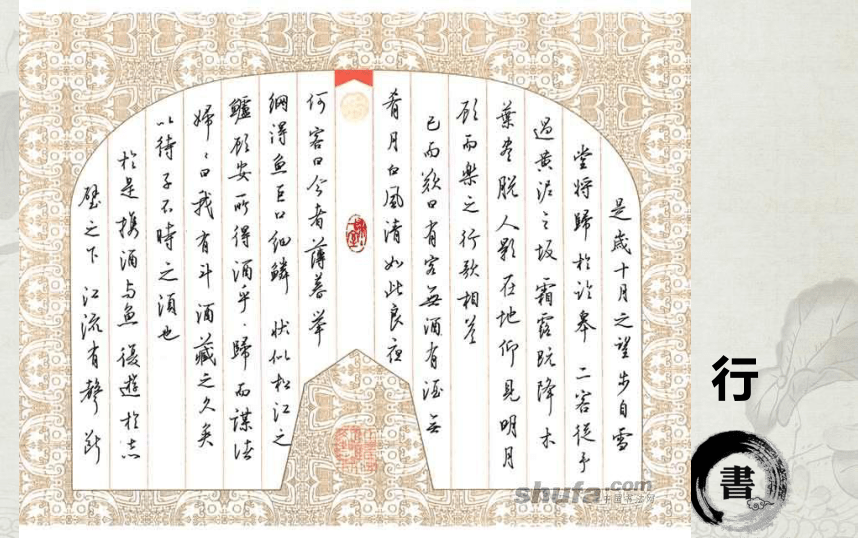 是歲十月之望步自雪
堂將歸於臨皋 二客從予
過黃泥之坂 霜露既降 木
葉盡脫 人影在地 仰見明月
顧而樂之 行歌相答
已而歎曰 有客無酒 有酒無
肴 月白風清 如此良夜
何 客曰 今者薄暮 舉
網得魚 巨口細鱗 狀似松江之
鱸 顧安所得酒乎 歸而謀諸
婦 婦曰 我有斗酒 藏之久矣
以待子不時之須也
於是攜酒與魚 復遊於赤
壁之下 江流有聲 斷
行
書
shufa.com
中国书法网